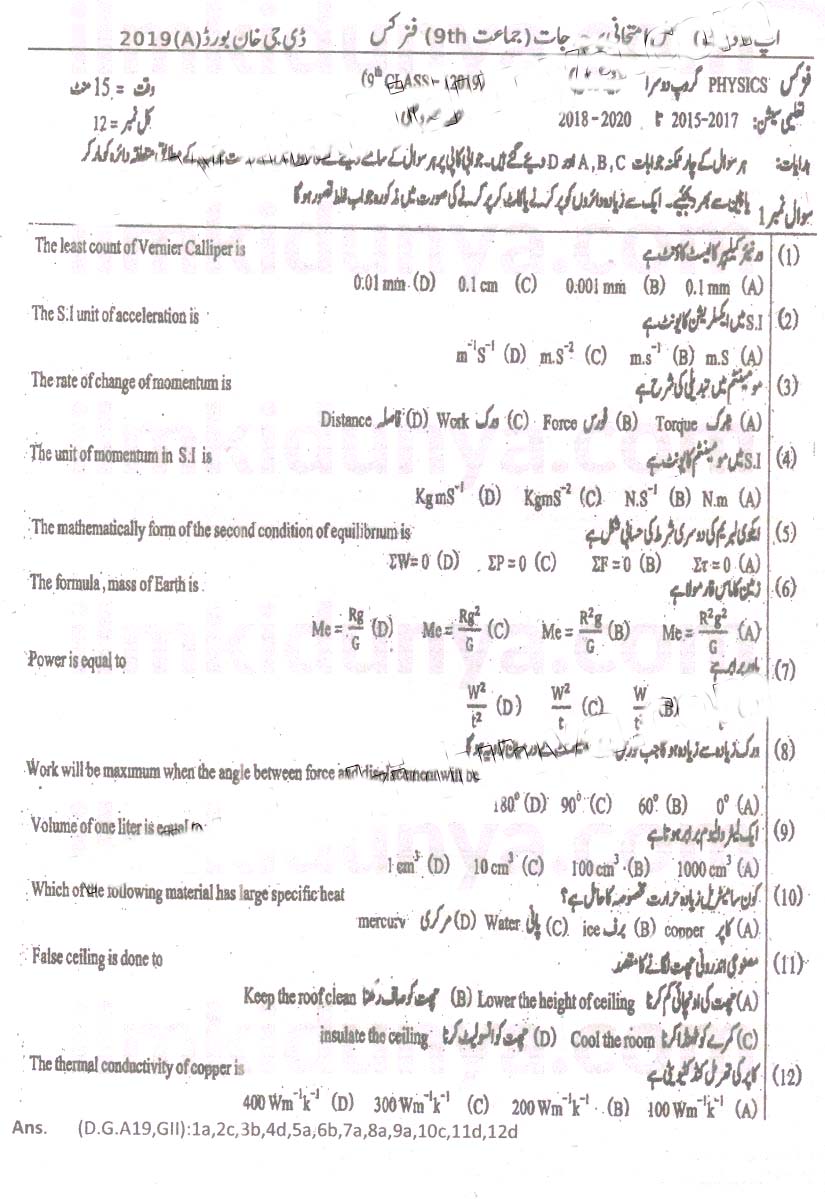 جات (جماعت 9th) فزکس ڈی جی خان بورڈ 2019(A)
فزکس PHYSICS گروپ دوسرا (9th CLASS - 2019) وقت = 15 منٹ
تعلیمی سیشن: 2015-2017 تا 2018-2020 کل نمبر = 12
ہدایات: ہر سوال کے چار ممکنہ جوابات A, B, C اور D دیئے گئے ہیں۔ جوابی کاپی پر ہر سوال کے سامنے دیئے گئے کے مطابق متعلقہ دائرہ کو مارکر
یا پین سے بھر دیجئے۔ ایک سے زیادہ دائروں کو پر کرنے یا کاٹ کر پر کرنے کی صورت میں مذکورہ جواب غلط تصور ہوگا
سوال نمبر 1
The least count of Vernier Calliper is ورنیئر کیلیپر کا لیسٹ کاؤنٹ ہے (1)
0.01 mm (D) 0.1 cm (C) 0.001 mm (B) 0.1 mm (A)
The S.I unit of acceleration is S.I میں ایکسلریشن کا یونٹ ہے (2)
m⁻¹S⁻¹ (D) m.S⁻² (C) m.s⁻¹ (B) m.S (A)
The rate of change of momentum is مومینٹم میں تبدیلی کی شرح ہے (3)
Distance فاصلہ (D) Work ورک (C) Force فورس (B) Torque ٹارک (A)
The unit of momentum in S.I is S.I میں مومینٹم کا یونٹ ہے (4)
KgmS⁻¹ (D) KgmS⁻² (C) N.S⁻¹ (B) N.m (A)
The mathematically form of the second condition of equilibrium is ایکوی لبریم کی دوسری شرط کی حسابی شکل ہے (5)
ΣW=0 (D) ΣP=0 (C) ΣF=0 (B) Στ=0 (A)
The formula, mass of Earth is زمین کا ماس فارمولا ہے (6)
Me = Rg/G (D) Me = Rg²/G (C) Me = R²g/G (B) Me = R²g²/G (A)
Power is equal to پاور برابر ہے (7)
W²/t² (D) W²/t (C) W/t (B)
ورک زیادہ سے زیادہ ہوگا جب فورس ہوگا (8)
Work will be maximum when the angle between force and displacement will be
180⁰ (D) 90⁰ (C) 60⁰ (B) 0⁰ (A)
Volume of one liter is equal to ایک لیٹر والیوم برابر ہوتا ہے (9)
1 cm³ (D) 10 cm³ (C) 100 cm³ (B) 1000 cm³ (A)
Which of the following material has large specific heat کون سا میٹریل زیادہ حرارت مخصوصہ کا حامل ہے؟ (10)
mercury مرکری (D) Water پانی (C) ice برف (B) copper کاپر (A)
False ceiling is done to مصنوعی اندرونی چھت لگانے کا مقصد (11)
Keep the roof clean چھت کو صاف رکھنا (B) Lower the height of ceiling چھت کی اونچائی کم کرنا (A)
insulate the ceiling چھت کو انسولیٹ کرنا (D) Cool the room کمرے کو ٹھنڈا کرنا (C)
The thermal conductivity of copper is کاپر کی تھرمل کنڈکٹیویٹی ہے (12)
400 Wm⁻¹k⁻¹ (D) 300 Wm⁻¹k⁻¹ (C) 200 Wm⁻¹k⁻¹ (B) 100 Wm⁻¹k⁻¹ (A)
Ans. (D.G.A19,GII):1a,2c,3b,4d,5a,6b,7a,8a,9a,10c,11d,12d
ilmkidunya.com